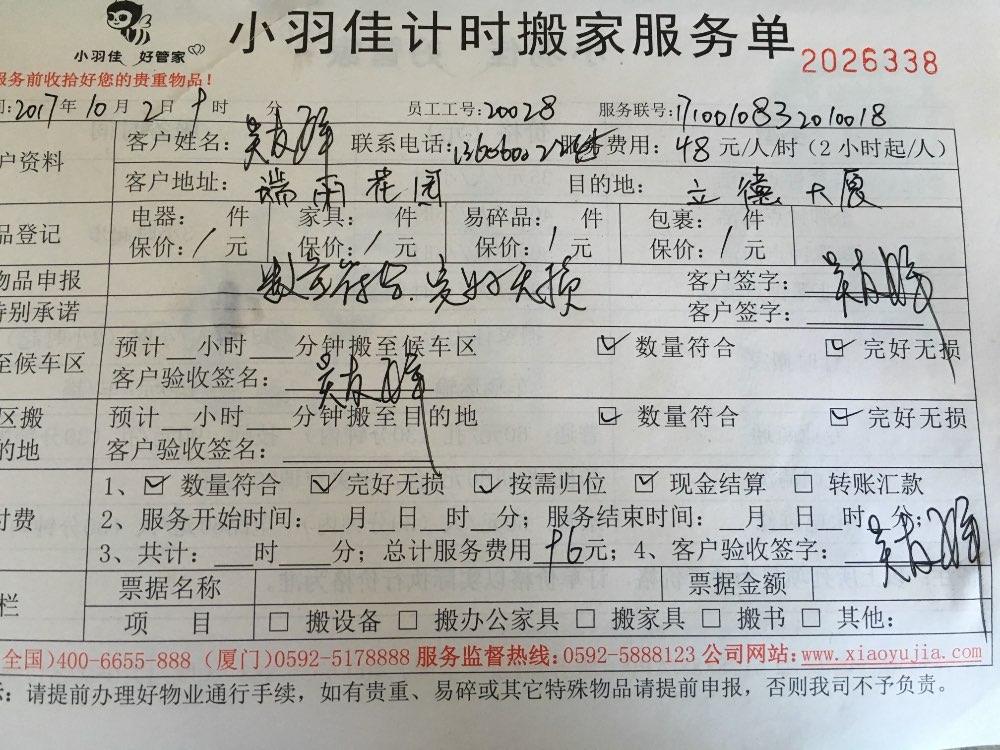 小羽佳 好管家
小羽佳计时搬家服务单
2026338
服务前收拾好您的贵重物品！
2017年10月2日9时 分 员工工号:20028 服务联号:171001083201001 8
户资料 客户姓名: 联系电话: 服务费用: 48元/人/时（2小时起/人）
客户地址: 瑞雨花园 目的地: 立德大厦
品登记 电器: 件 家具: 件 易碎品: 件 包裹: 件
保价: / 元 保价: / 元 保价: / 元 保价: / 元
物品申报 数量符合.完好无损 客户签字:
特别承诺 客户签字:
至候车区 预计__小时___分钟搬至候车区 ☑ 数量符合 ☑ 完好无损
客户验收签名:
区搬 预计__小时___分钟搬至目的地 ☑ 数量符合 ☑ 完好无损
的地 客户验收签名:
1、☑ 数量符合 ☑ 完好无损 ☑ 按需归位 ☑ 现金结算 □ 转账汇款
付费 2、服务开始时间: __月__日__时__分；服务结束时间: __月__日__时__分；
3、共计: ___时___分；总计服务费用96元；4、客户验收签字:
栏 票据名称 票据金额
项 目 □ 搬设备 □ 搬办公家具 □ 搬家具 □ 搬书 □ 其他:
全国)400-6655-888 (厦门)0592-5178888 服务监督热线:0592-5888123 公司网站:www.xiaoyujia.com
示: 请提前办理好物业通行手续，如有贵重、易碎或其它特殊物品请提前申报，否则我司不予负责。